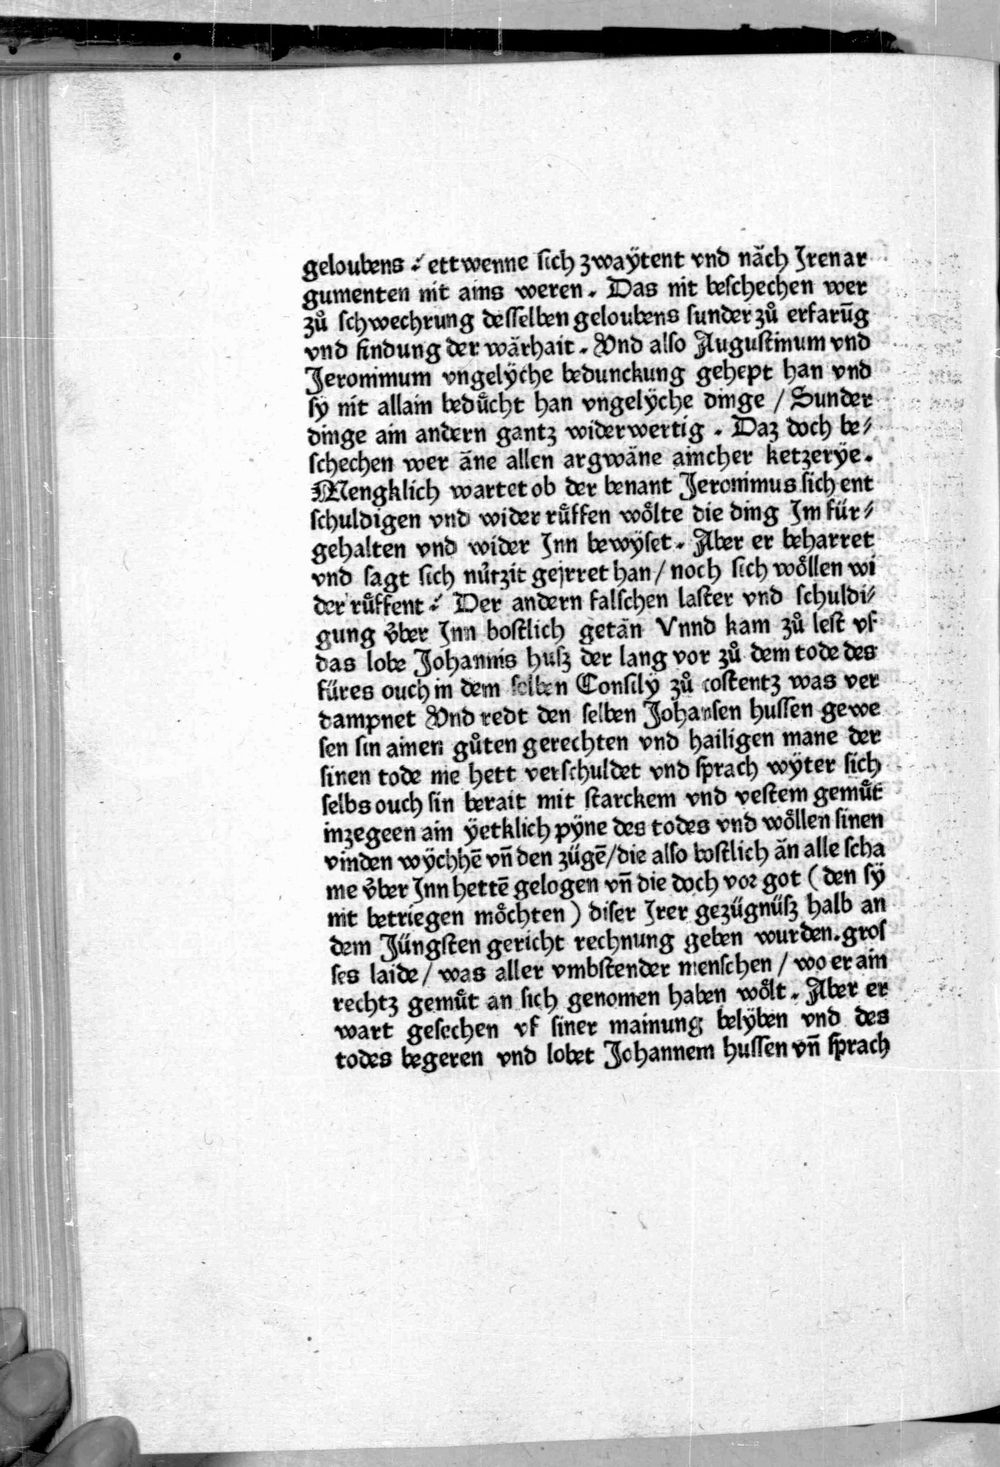 geloubens .᷍ ettwenne sich zwaÿtent vnd näch Jren ar
gumenten nit ains weren. Das nit beschechen wer
zů schwechrung desselben geloubens sunder zů erfarūg
vnd findung der wärhait. Vnd also Augustinum vnd
Jeronimum vngelÿche bedunckung gehept han vnd
sÿ nit allain bedůcht han vngelÿche dinge / Sunder
dinge ain andern gantz widerwertig . Daz doch be⸗
schechen wer äne allen argwäne aincher ketzerÿe.
Mengklich wartet ob der benant Jeronimus sich ent
schuldigen vnd wider růffen woͤlte die ding Jm für⸗
gehalten vnd wider Jnn bewÿset. Aber er beharret
vnd sagt sich nůtzit gejrret han / noch sich woͤllen wi
der růffent .᷍ Der andern falschen laster vnd schuldi⸗
gung v̈ber Jnn bostlich getän Vnnd kam zů lest vf
das lobe Johannis husz der lang vor zů dem tode des
füres ouch in dem selben Consily zů costentz was ver
dampnet Vnd redt den selben Johansen hussen gewe
sen sin ainen gůten gerechten vnd hailigen mane der
sinen tode nie hett verschuldet vnd sprach wÿter sich
selbs ouch sin berait mit starckem vnd vestem gemůt
inzegeen ain ÿetklich pÿne des todes vnd woͤllen sinen
vinden wÿchhē vn̄ den zügē/die also bostlich än alle scha
me v̈ber Jnn hettē gelogen vn̄ die doch vor got (den sÿ
nit betriegen moͤchten) diser Jrer gezügnüsz halb an
dem Jüngsten gericht rechnung geben wurden. gros
ses laide / was aller vmbstender menschen / wo er ain
rechtz gemůt an sich genomen haben woͤlt. Aber er
wart gesechen vf siner mainung belÿben vnd des
todes begeren vnd lobet Johannem hussen vn̄ sprach